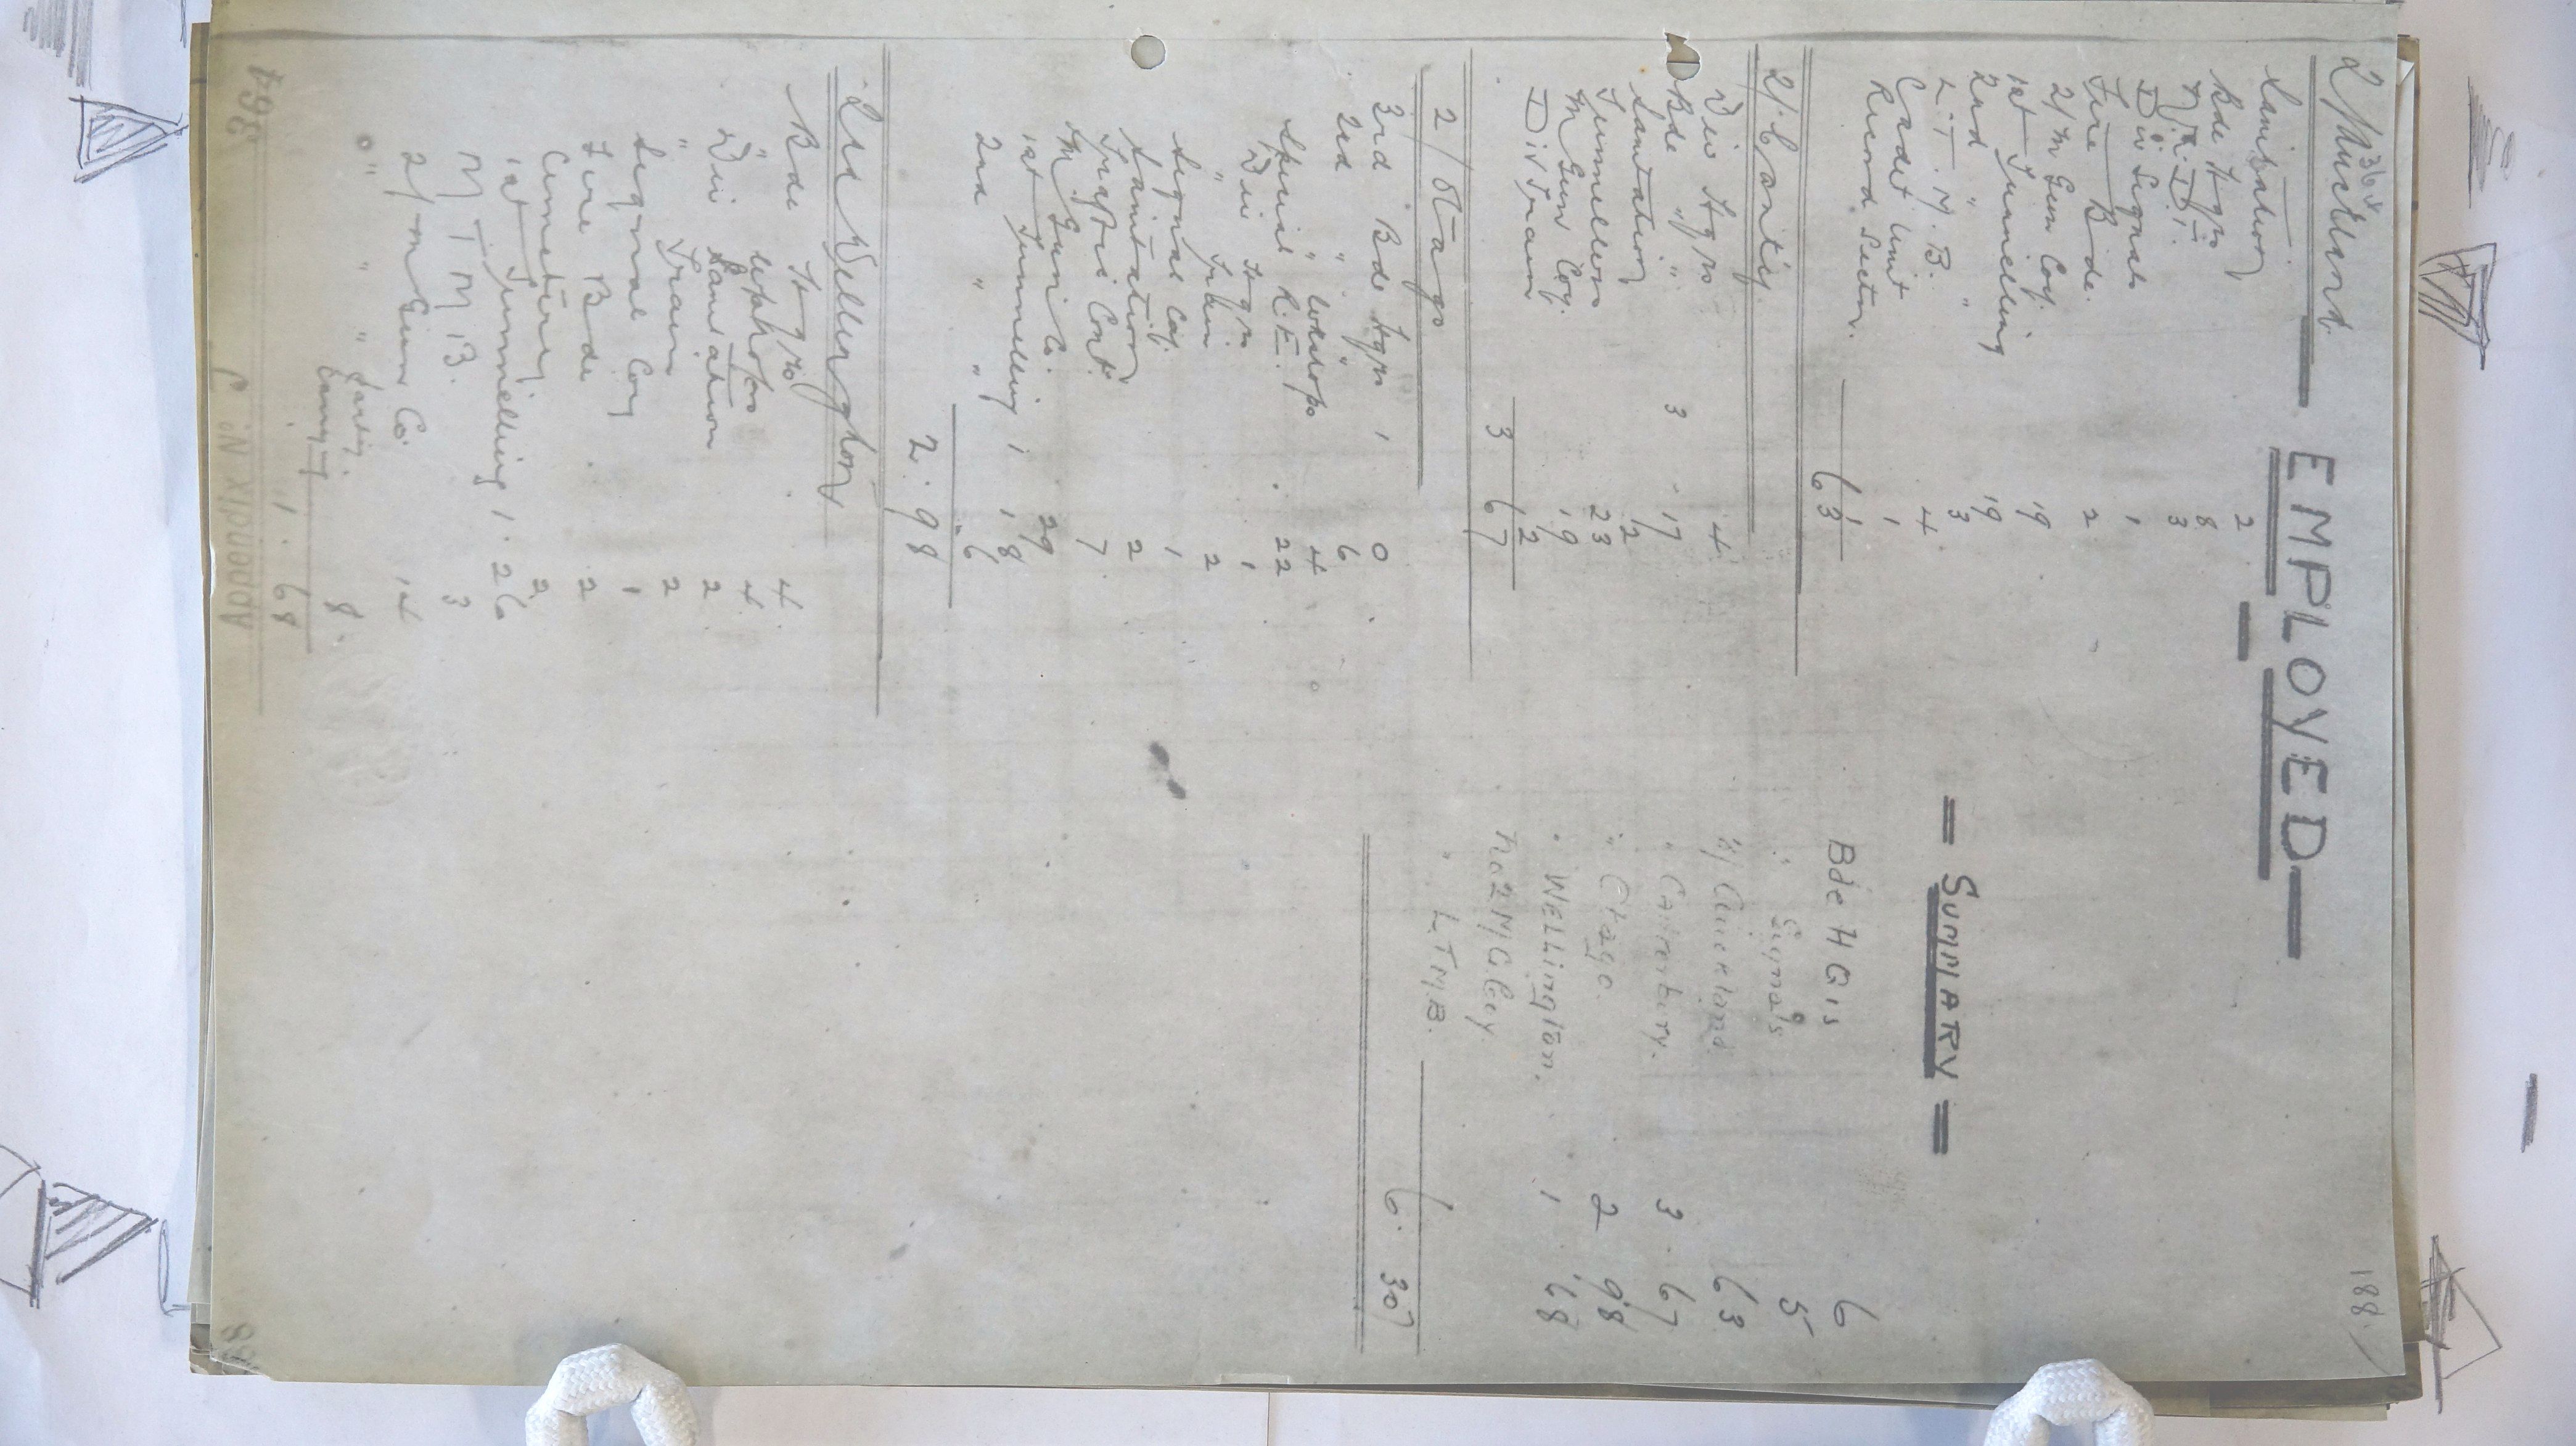 188
EMPLOYED
2/Auckland.
Sanitation 2
Bde Hqrs 8
3
Div Signals 1
Fire Bde. 2
2/M Gun Coy. 19
1st Tunnelling 19
2nd " " 3
L.T.M.B. 4
Cadet Unit 1
Record Sectn.
63
2/Canty.
Div Hqrs 4
Bde " 3 17
Sanitation 2
Tunnellers 23
M Gun Coy. 19
Div Train 2
3 67
2/Otago
3rd Bde Hqrs 1 0
2nd " " 6
" Workshops 4
Special R.E. 22
Div Hqrs 1
" Train 2
Signal Coy. 1
Sanitation 2
Traffic Cont. 7
M Gun Co. 29
1st Tunnelling 1 18
2nd " " 6
2. 98
2nd Wellington
Bde Hqrs 4
" Workshops 4
Div Sanitation 2
" Train 2
Signal Coy 1
Fire Bde 2
Cemetery 2
1st Tunnelling 1. 26
M T M B. 3
2/M Gun Co. 14
" " " Carrying Party. 8.
1. 68
Appendix No. J
364
= SUMMARY =
Bde HQrs 6
" Signals 5
2/ Auckland. 63
" Canterbury. 3 67
" Otago. 2 98
" WELLington. 1 68
No 2 M/G Coy.
" L.T.M.B.
6. 307